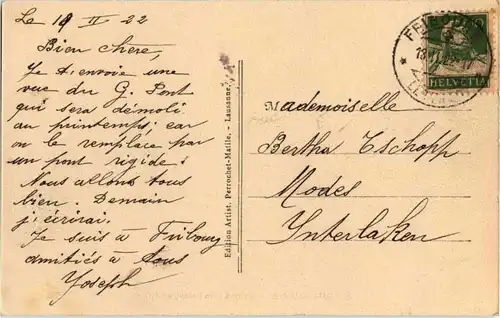 Le 19 II 22
Bien chère,
Je t'envoie une
vue du G. Pont
qui sera démoli
au printemps; car
on le remplace par
un pont rigide!
Nous allons tous
bien. Demain
j'écrirai.
Je suis à Fribourg
amitiés à tous
Joseph
Edition Artist. Perrochet-Matile, - Lausanne.
HELVETIA
Mademoiselle
Bertha Tschopp
Modes
Interlaken